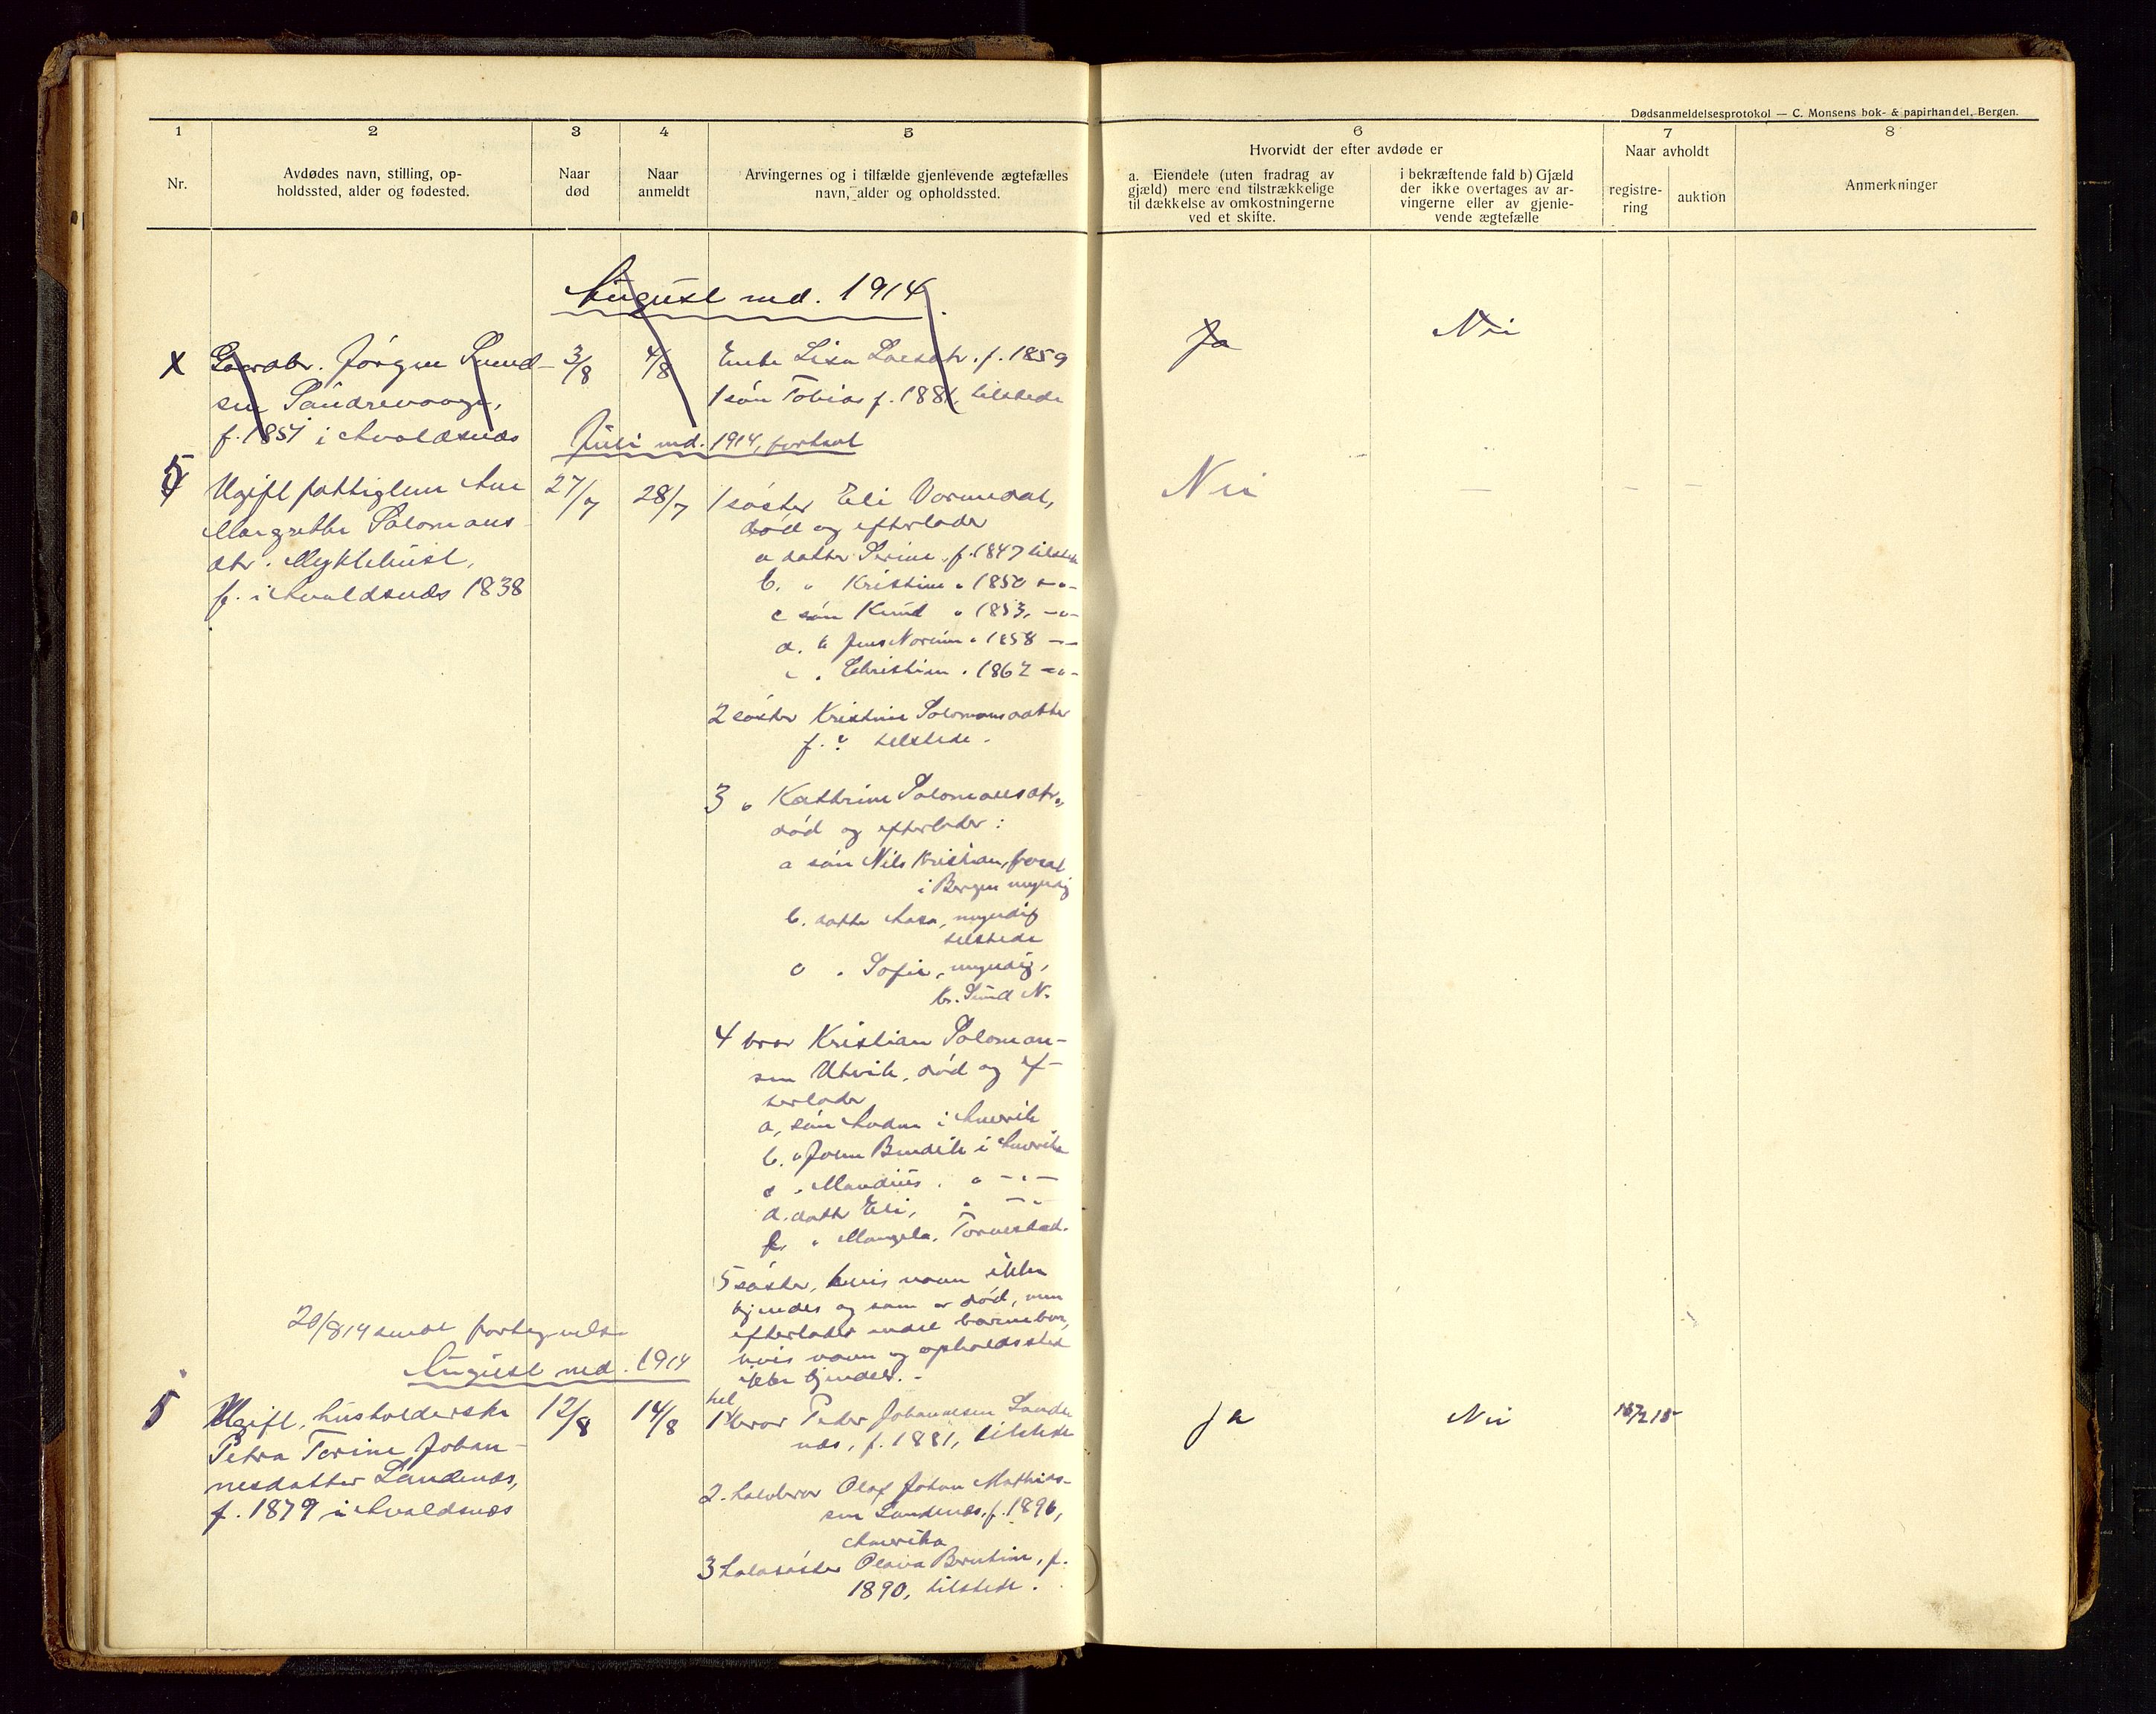 Dødsanmeldelsesprotokol — C. Monsens bok- & papirhandel, Bergen.
1
2
3
4
5
6
7
8
Nr.
Avdødes navn, stilling, op-
holdssted, alder og fødested.
Naar
død
Naar
anmeldt
Arvingernes og i tilfælde gjenlevende ægtefælles
navn, alder og opholdssted.
Hvorvidt der efter avdøde er
a. Eiendele (uten fradrag av
gjæld) mere end tilstrækkelige
til dækkelse av omkostningerne
ved et skifte.
i bekræftende fald b) Gjæld
der ikke overtages av ar-
vingerne eller av gjenle-
vende ægtefælle
Naar avholdt
registre-
ring
auktion
Anmerkninger
August md. 1914.
x Jørgen Sund-
sen Sandrevaage,
f. 1851 i Avaldsnes
3/8
4/8
Enke Lisa Larsdtr. f. 1859
1 søn Tobias f. 1881, tilstede
Ja
Nei
Juli md. 1914, fortsat
5
Ugift fattiglem Ane
Margrethe Salomons
dtr. Myklebust,
f. i Avaldsnes 1838
27/7
28/7
1 søster Eli Vormedal,
død og efterlader
a datter Serine, f. 1847 tilstede
b. " Kristine " 1850 -"-
c søn Knud " 1853, -"-
d. " Jens Norenius " 1858 -"-
" Christian " 1862 -"-
2 søster Kristine Salomonsdatter
f. ? tilstede.
3 " Kathrine Salomonsdtr.,
død og efterlader:
a søn Nils Kristian,
i Bergen myndig
b. datter Aasa, myndig
tilstede
c " Sofie, myndig,
br. Sund N.
4 bror Kristian Salomon-
sen Utvik, død og ef-
terlader
a, søn Andres i Amerik
b. " John Bendik i Amerika
c " Mandius. " -"-
d. datter Eli, " -"-
f. " Mangela, Torvestad.
5 søster, hvis navn ikke
kjendes og som er død, men
efterlader endel barnebarn,
hvis navn og opholdssted
ikke kjendes. -
Nei
—
—
—
20/8 14 sendt fortegnelse
August md. 1914
5
Ugift, husholderske
Petra Torine Johan-
nesdatter Landenes,
f. 1879 i Avaldsnes
12/8
14/8
hel
1 bror Peder Johannesen Lande
nes, f. 1881, tilstede
2. halvbror Olaf Johan Mathias-
sen Landenes, f. 1896,
Amerika
3 halvsøster Olava Berntine, f.
1890, tilstede.
Ja
Nei
15/2 15